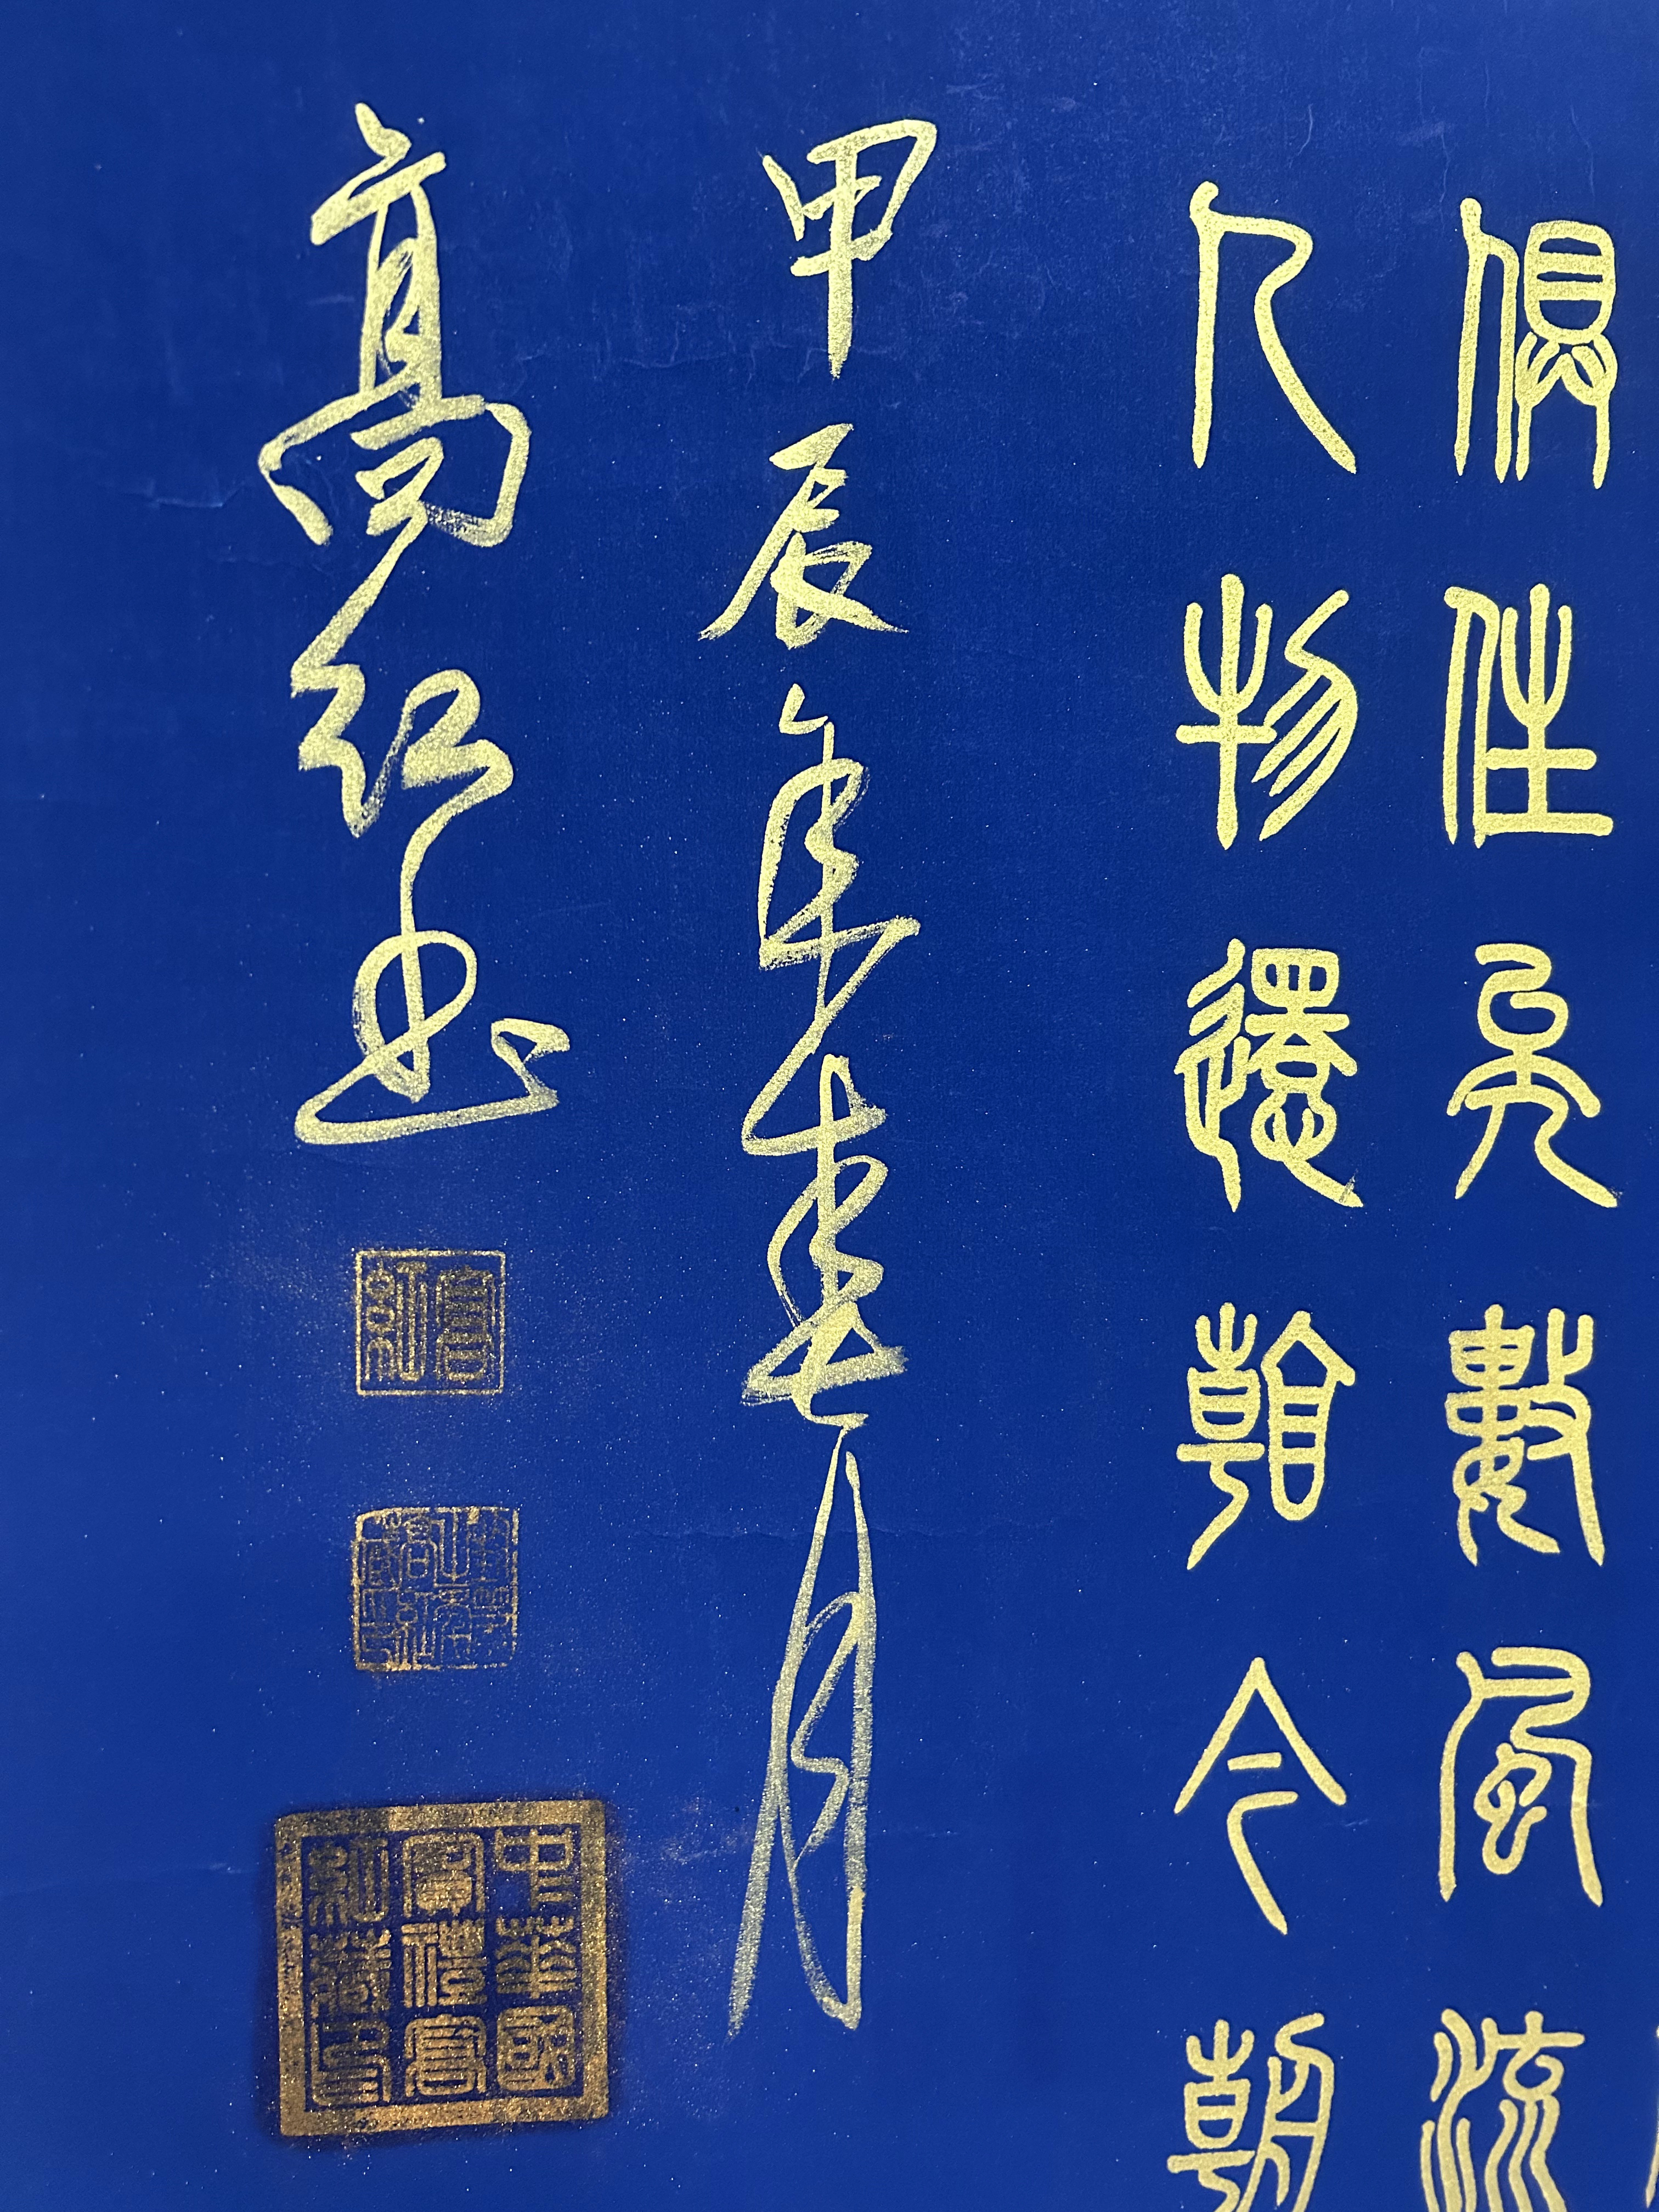 俱往矣數風流
人物還看今朝
甲辰年春月
高紅書
高紅
中華國